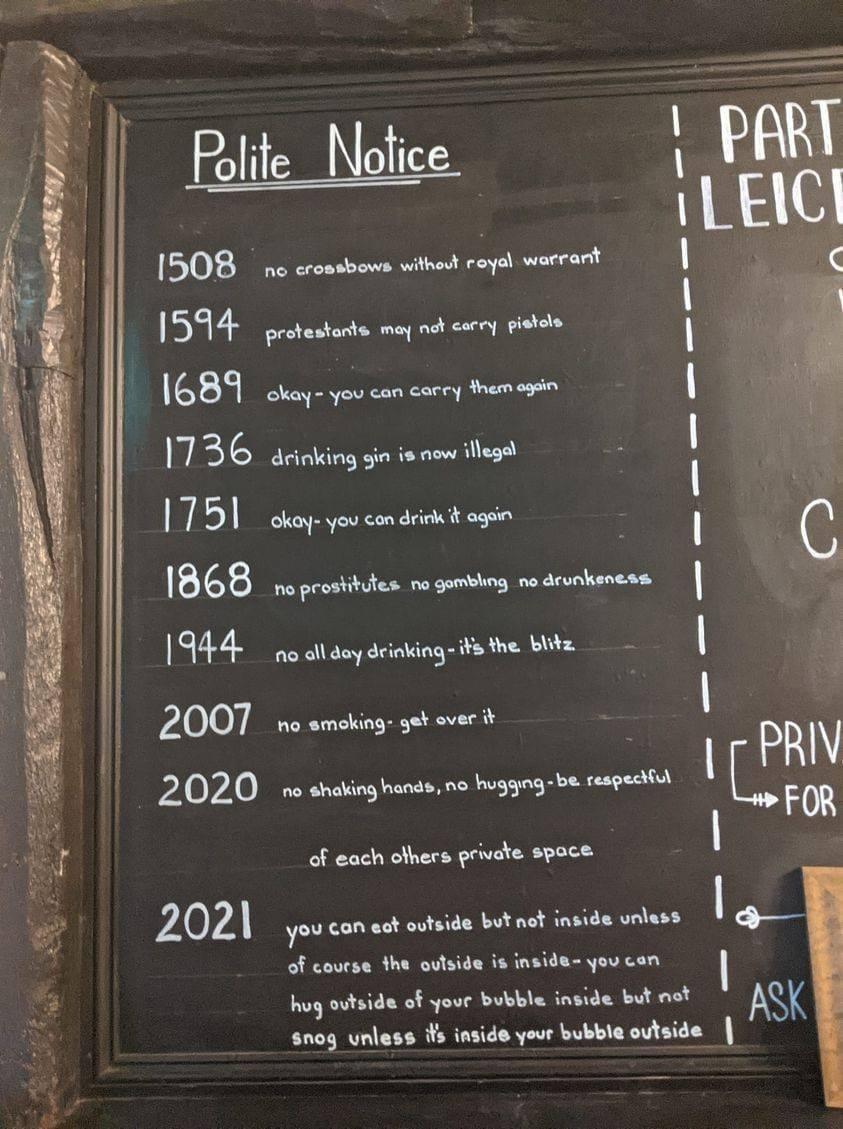 Polite Notice
1508 no crossbows without royal warrant
1594 protestants may not carry pistols
1689 okay - you can carry them again
1736 drinking gin is now illegal
1751 okay - you can drink it again
1868 no prostitutes no gambling no drunkeness
1944 no all day drinking - it's the blitz
2007 no smoking - get over it
2020 no shaking hands, no hugging - be respectful
of each others private space
2021 you can eat outside but not inside unless
of course the outside is inside - you can
hug outside of your bubble inside but not
snog unless it's inside your bubble outside
PART
LEIC
C
PRIV
FOR
ASK